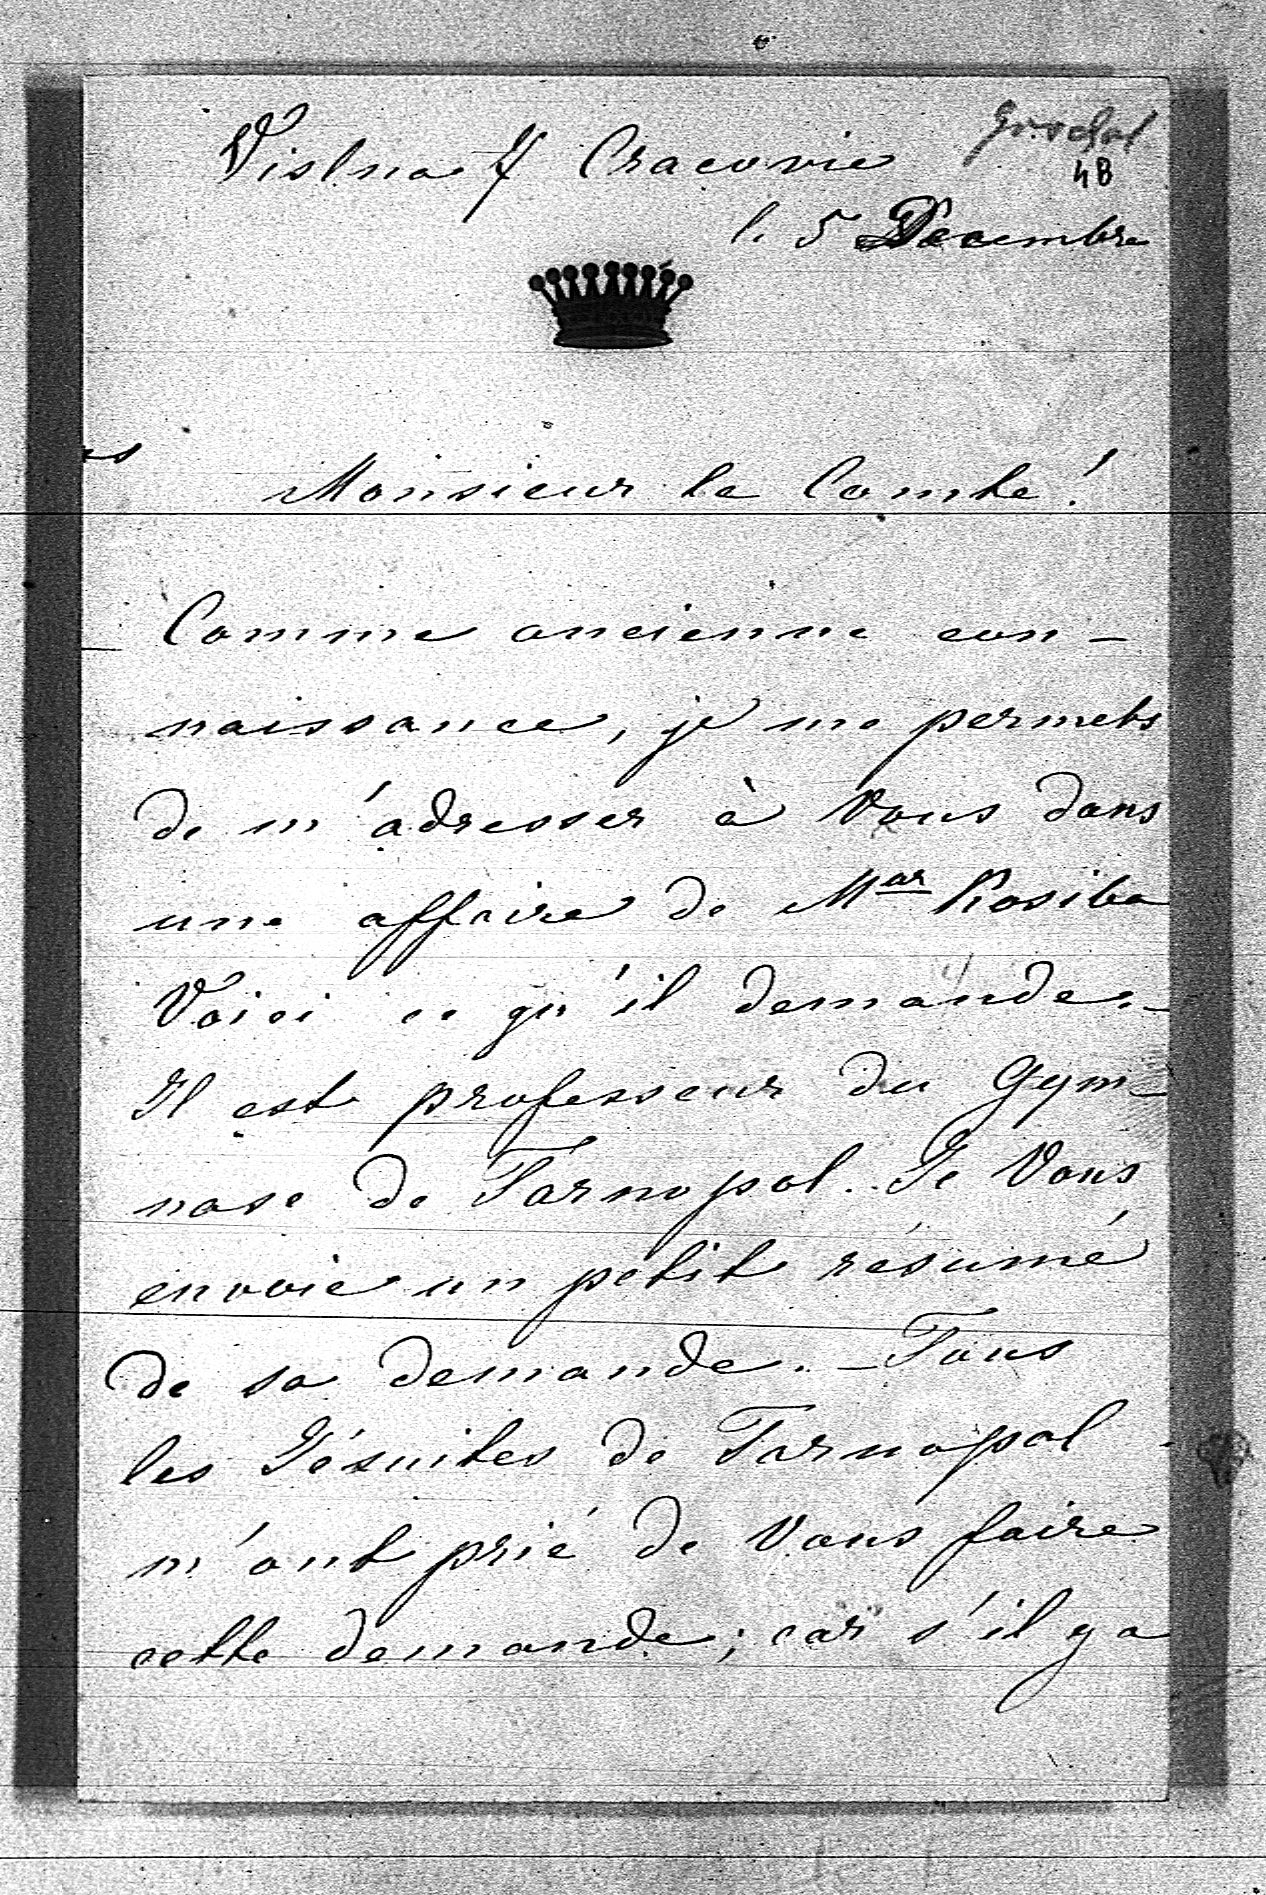 Vislna 7 Cracovie
48
l. 5 Decembre
Monsieur le Comte!
Comme ancienne con-
naissance, je me permets
de m'adresser à Vous dans
une affaire de Mar Kosiba
Voici ce qu'il demande.-
Il est professeur du Gym-
nase de Tarnopol. Je Vous
envoie un petit résumé
de sa demande. - Tous
les Jésuites de Tarnopol
m'ont prié de Vous faire
cette demande; car s'il y a